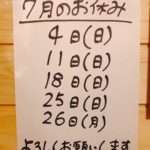 7月のお休み
4日(日)
11日(日)
18日(日)
25日(日)
26日(月)
よろしくお願いします